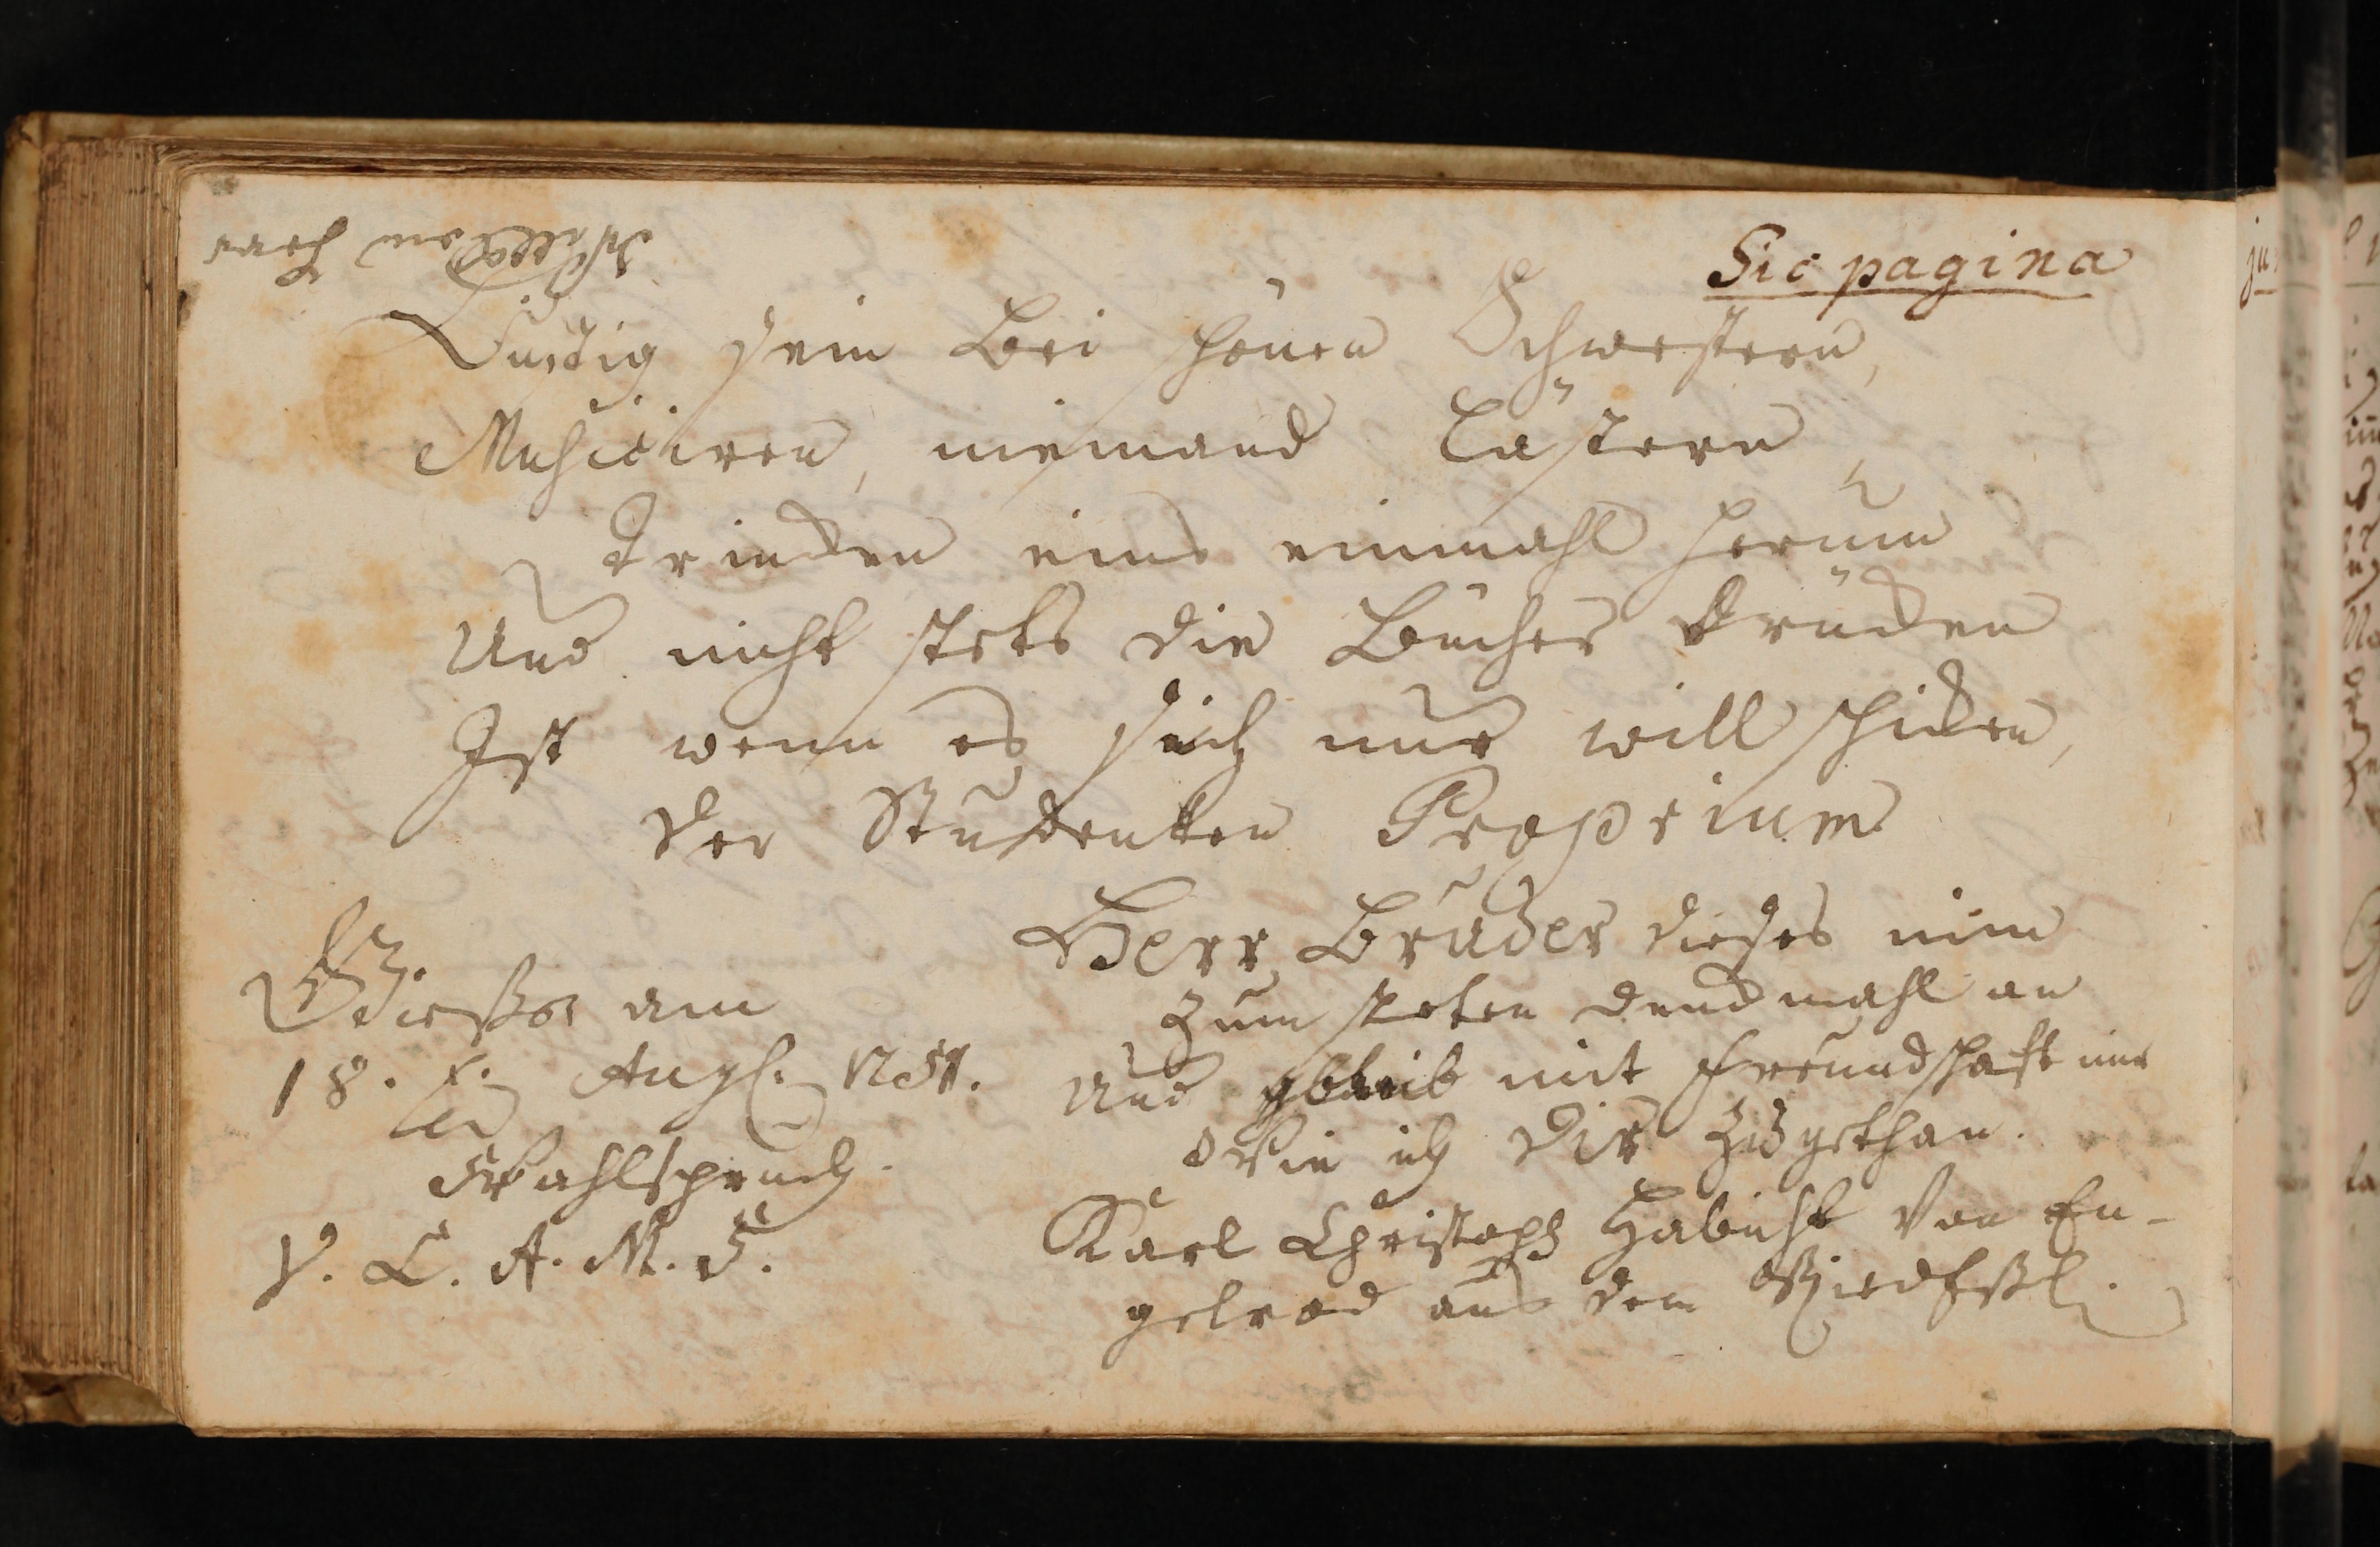 Sic pagina
Lustig sein bei schönen Schwestern,
Musiciren, niemand lästern
Trincken eins einmahl herum
Und nicht stets die Bücher drücken
Ist wenn es sich nur will schicken,
der Studenten Proprium
Herr Bruder dieses nim
zum steten denckmahl an
Und bleib mit freundschafft mir
Wie ich dir zugethan.
Karl Christoph Habicht von En-
gelrod aus dem
Giessen am
18. Aug. 1751.
Wahlspruch.
V. L. A. M. F.